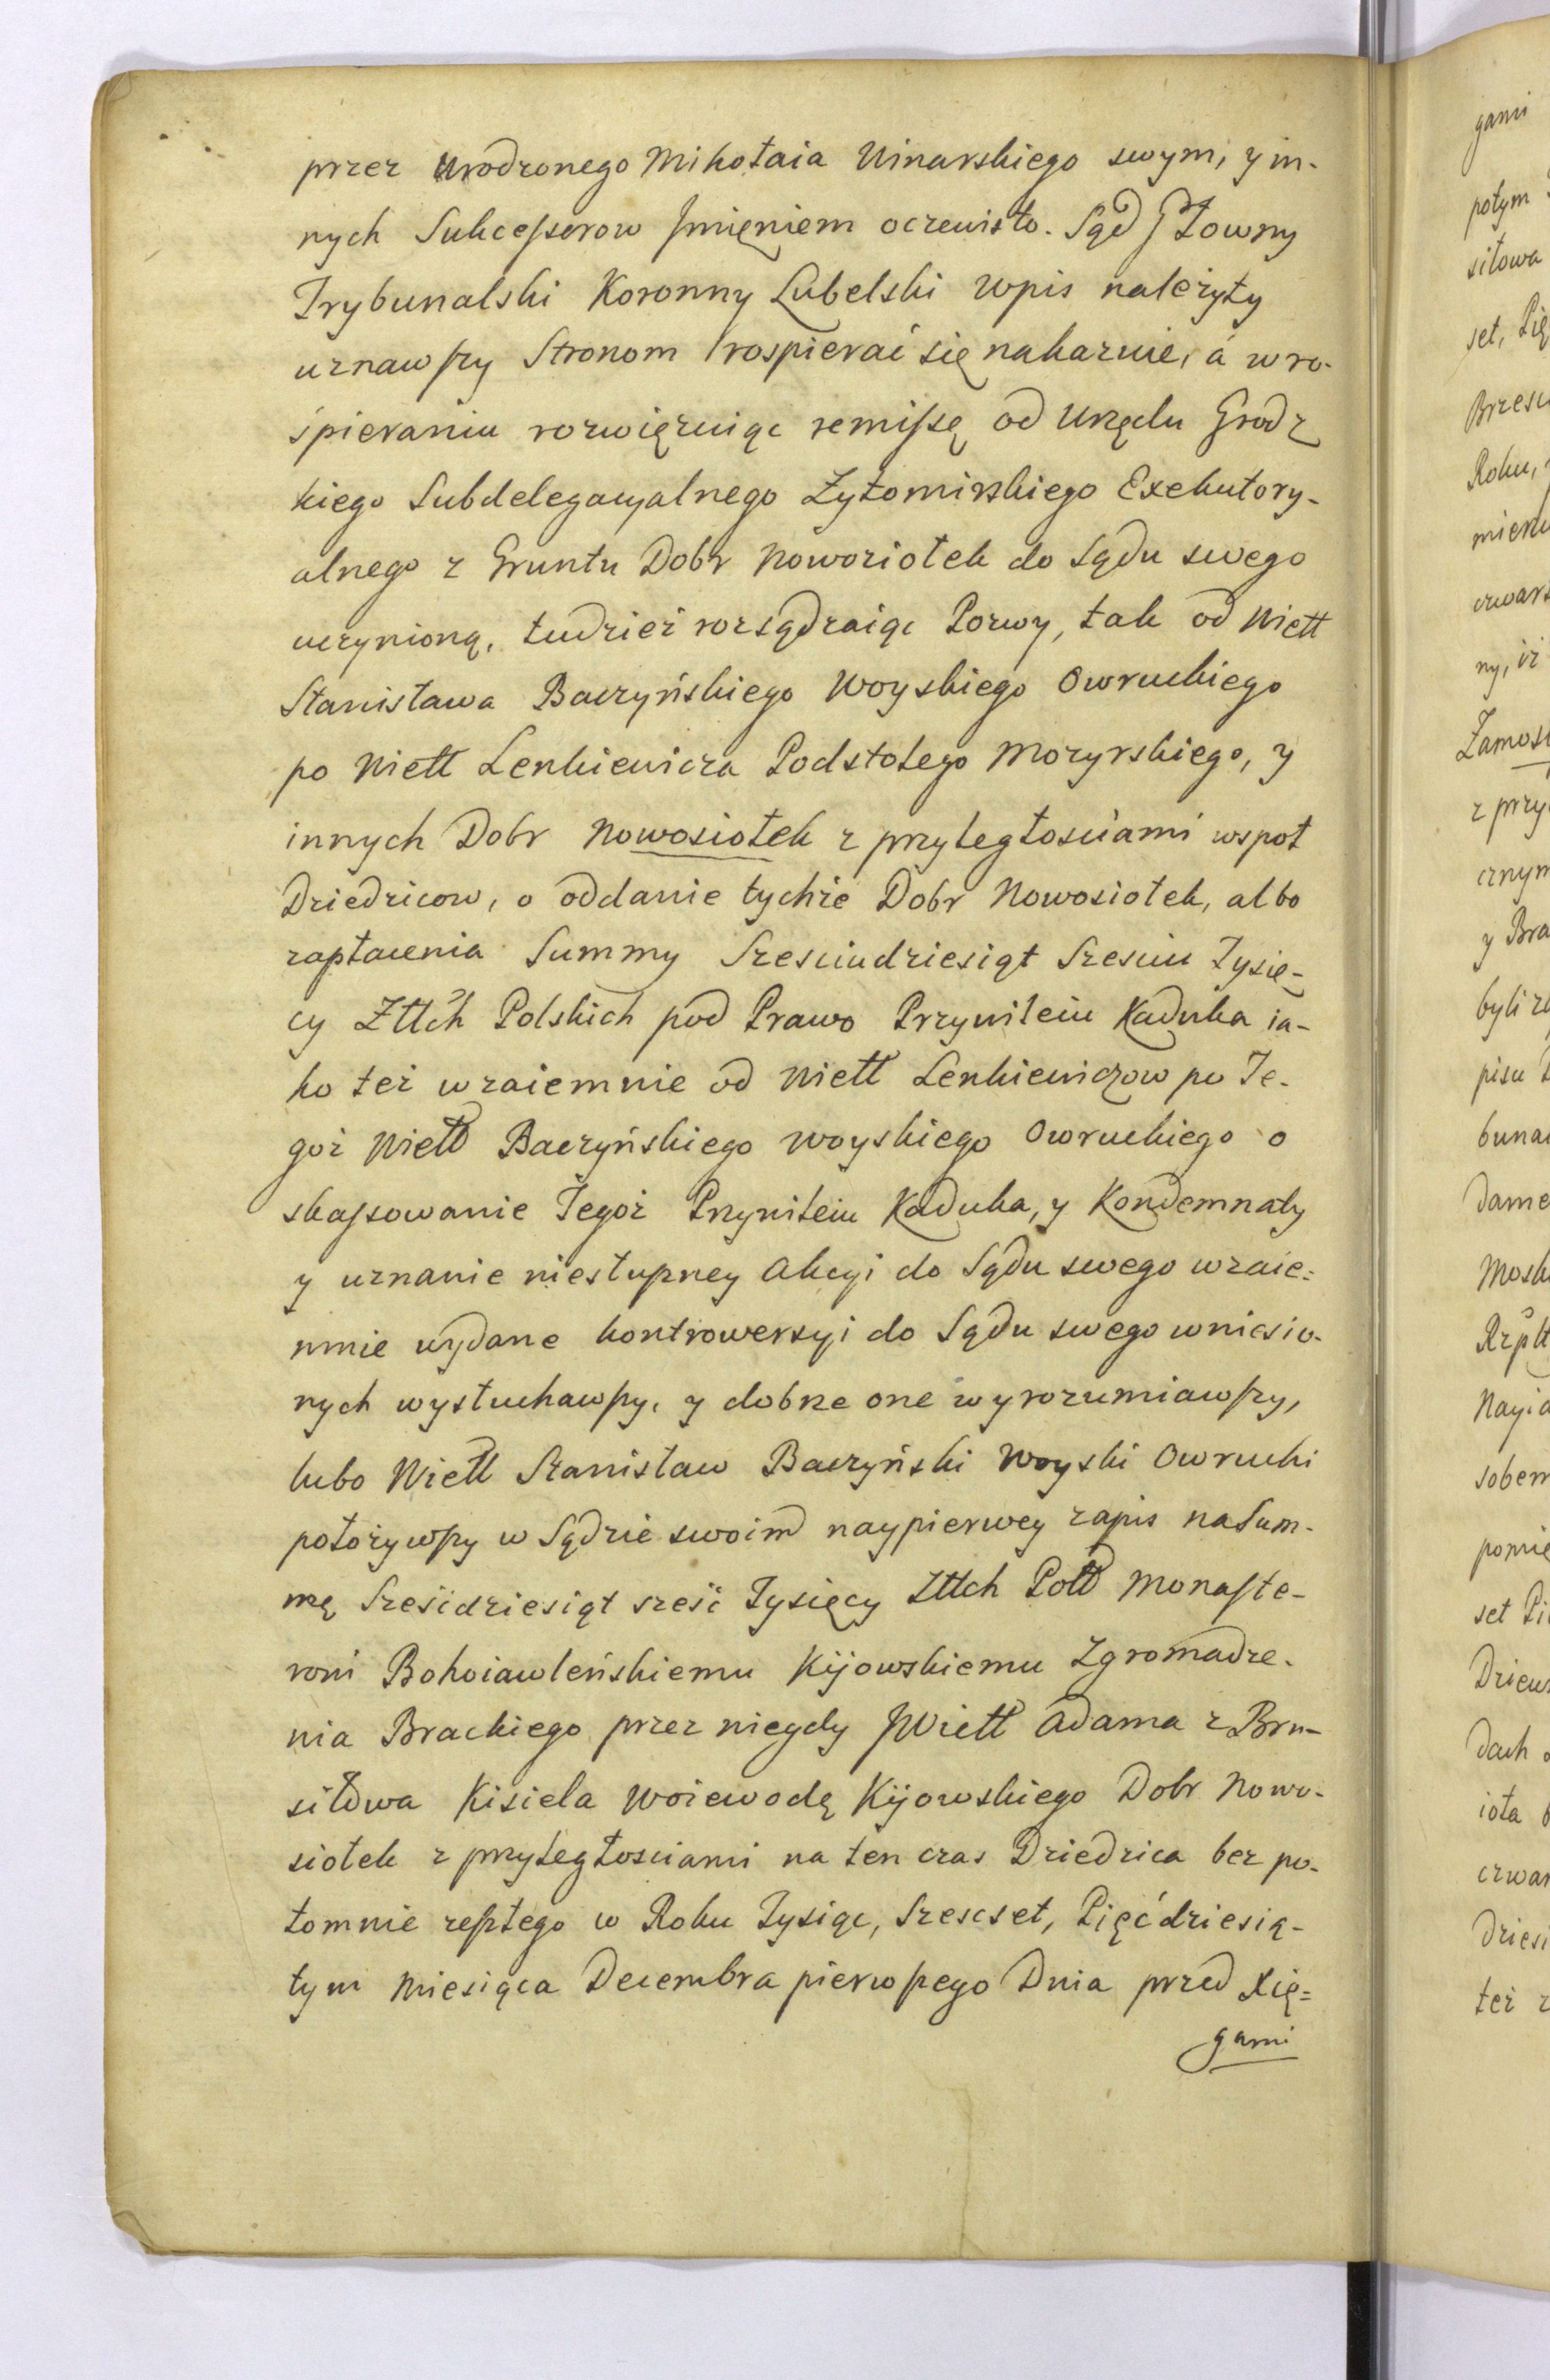 przez Urodzonego Mikołaia Winarskiego swym, y in-
nych Sukcessorow Jmięniem oczewisto. Sąd Głowny
Trybunalski Koronny Lubelski wpis należyty
uznawszy Stronom rospierać się nakazuie, á w ro-
spieraniu rozwięzuiąc remissę od Urzędu Grodz
kiego Subdelegacyalnego Zytomirskiego Exekutory-
alnego z Gruntu Dobr Nowoziołek do Sądu swego
uczynioną, tudzież rozsądzaiąc Pozwy, tak od Wiełł
Stanisława Baczyńskiego Woyskiego Owruckiego
po Wiełł Lenkiewicza Podstolego Mozyrskiego, y
innych Dobr Nowosiołek z przyległościami wspoł
Dziedzicow, o oddanie tychże Dobr Nowosiołek, albo
zapłacenia Summy Szesciudziesiąt Szesciu Tysię-
cy Złłch Polskich pod Prawo Przywileiu Kaduka ia-
ko też wzaiemnie od Wiełł Lenkiewiczow po Te-
goż Wiełł Baczyńskiego Woyskiego Owruckiego o
skassowanie Tegoż Przywileiu Kaduka, y Kondemnaty
y uznanie niestupney Akcyi do Sądu swego wzaie=
mnie wydane kontrowersyi do Sądu swego wniesio-
nych wysłuchawszy, y dobrze one wyrozumiawszy,
lubo Wiełł Stanisław Baczyński Woyski Owrucki
położywszy w Sądzie swoim naypierwey zapis na Sum-
mę Sześćdziesiąt sześć Tysięcy Złłch Poll Monaste-
rowi Bohoiawleńskiemu Kijowskiemu Zgromadze-
nia Brackiego przez niegdy JWiełł Adama z Bru-
siłowa Kisiela Woiewodę Kijowskiego Dobr Nowo-
siołek z przyległosciami na ten czas Dziedzica bez po-
tomnie zeszłego w Roku Tysiąc, Szescset, Pięćdziesią-
tym Miesiąca Decembra pierwszego Dnia przed Xię=
gami